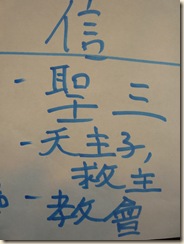 信
- 聖三
- 天主子,
救主
- 教會